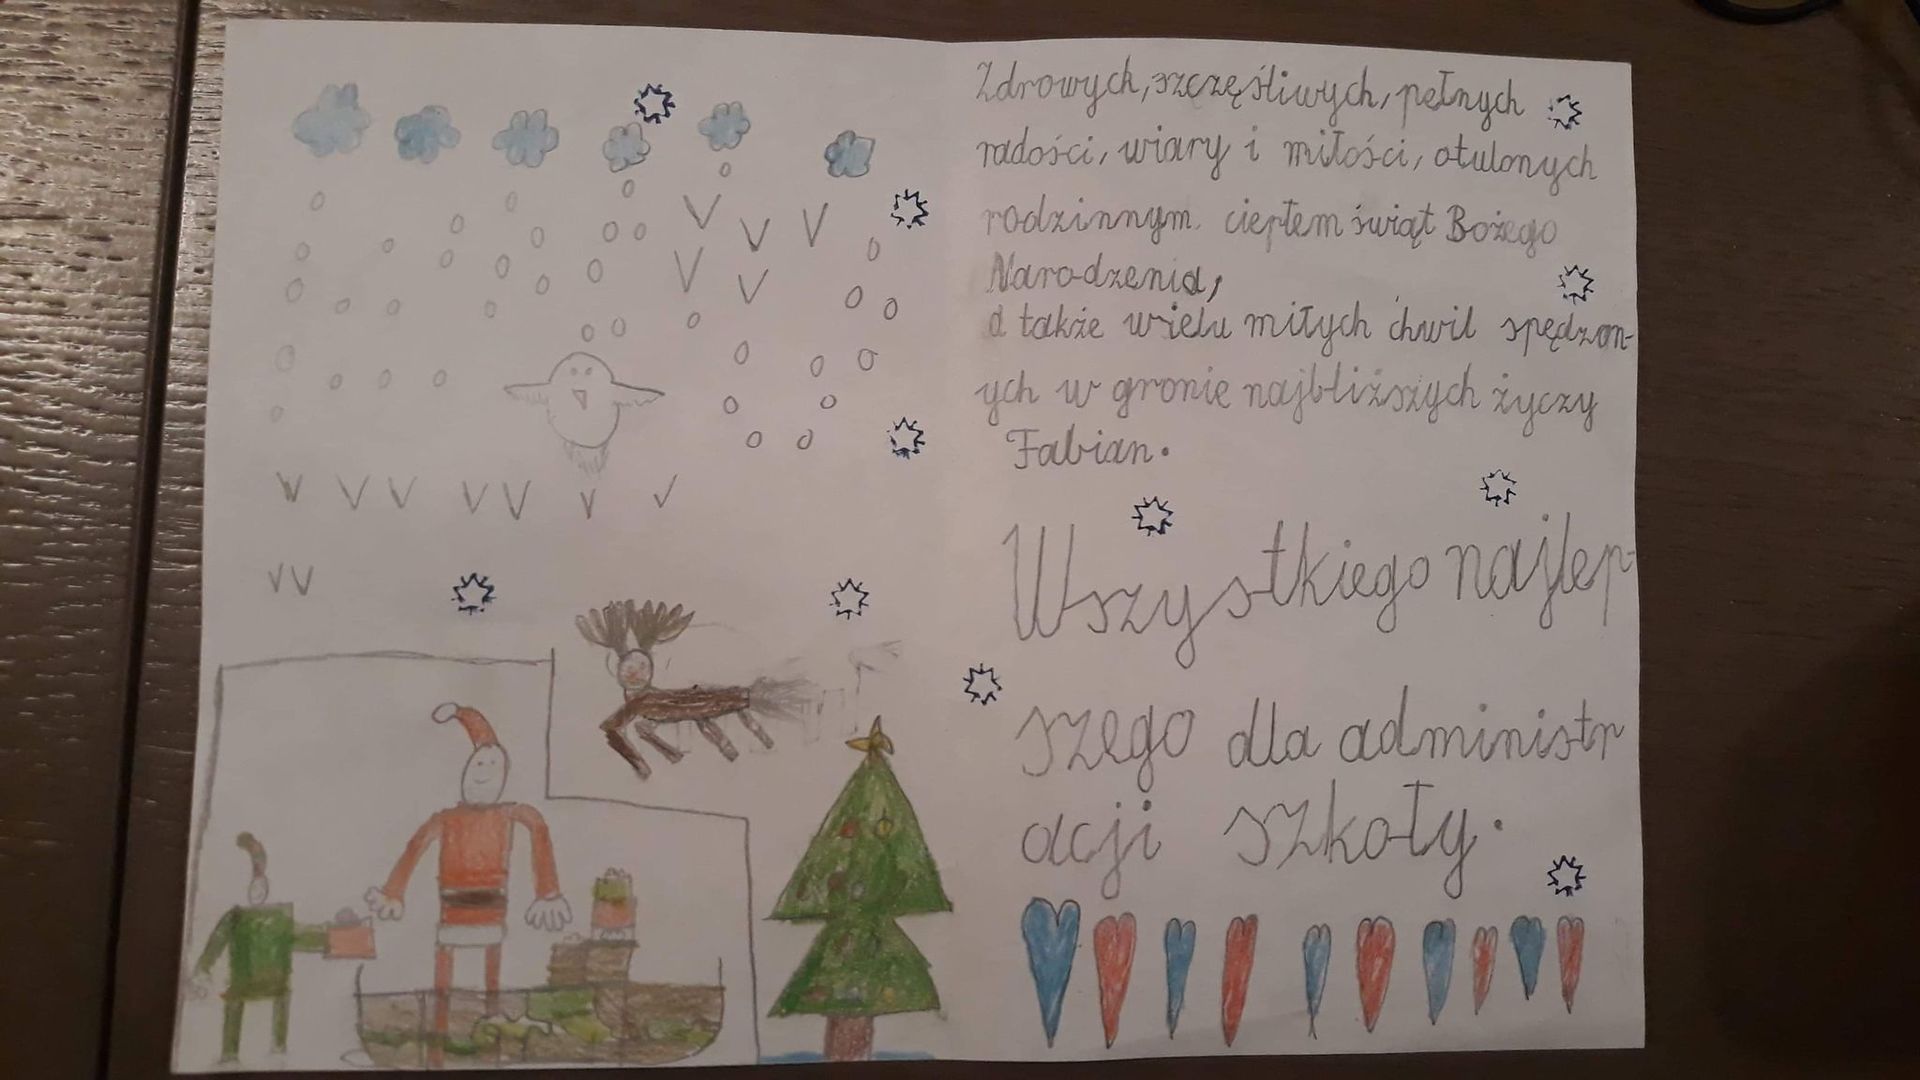 Zdrowych, szczęśliwych, pełnych
radości, wiary i miłości, otulonych
rodzinnym ciepłem świąt Bożego
Narodzenia,
a także wielu miłych chwil spędzon-
ych w gronie najbliższych życzy
Fabian.
Wszystkiego najlep-
szego dla administr
acji szkoły.